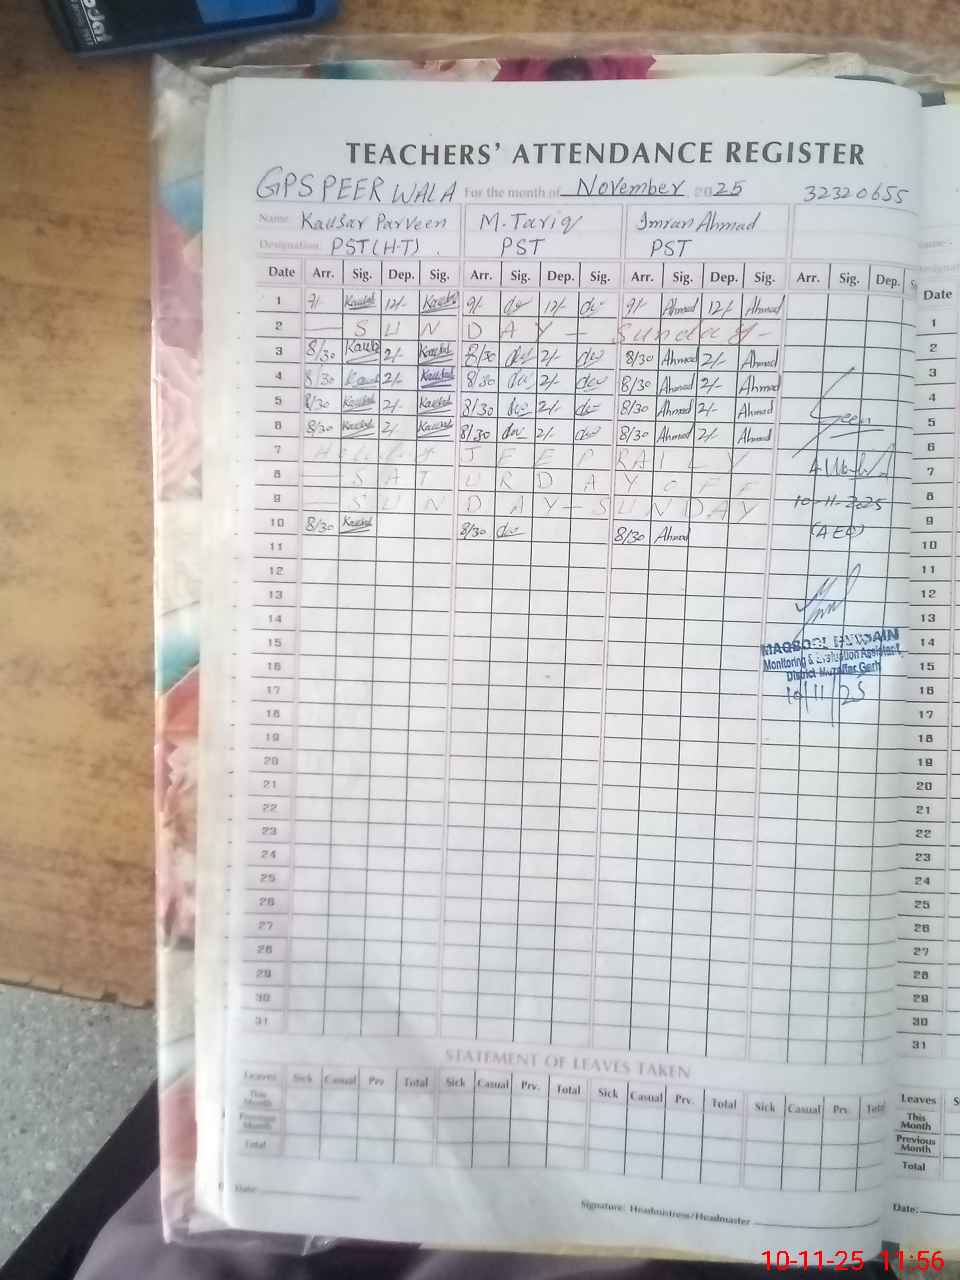 TEACHERS' ATTENDANCE REGISTER
GPS PEER WALA For the month of November 2025 32320655
Name: Kausar Parveen M. Tariq Imran Ahmad
Designation: PST(H.T) PST PST
Date Arr. Sig. Dep. Sig. Arr. Sig. Dep. Sig. Arr. Sig. Dep. Sig. Arr. Sig. Dep. Date
1 9/- 12/- 9/- 12/- 9/- Ahmad 12/- Ahmad
2 — SUNDAY — Sunday -
3 8/30 2/- 8/30 2/- 8/30 Ahmad 2/- Ahmad
4 8/30 2/- 8/30 2/- 8/30 Ahmad 2/- Ahmad
5 8/30 2/- 8/30 2/- 8/30 Ahmad 2/- Ahmad
6 8/30 2/- 8/30 2/- 8/30 Ahmad 2/- Ahmad
7 Holiday JEEP RAILY
8 — SATURDAY OFF
9 — SUNDAY — SUNDAY
10 8/30 8/30 8/30 Ahmad
Seen
10-11-2025
(AEO)
11
12
13
14
15
16
17
18
19
20
21
22
23
24
25
26
27
28
29
30
31
MAQBOOL HUSSAIN
Monitoring & Evaluation Assistant
District Muzaffar Garh
10/11/25
1
2
3
4
5
6
7
8
9
10
11
12
13
14
15
16
17
18
19
20
21
22
23
24
25
26
27
28
29
30
31
STATEMENT OF LEAVES TAKEN
Leaves Sick Casual Prv Total Sick Casual Prv. Total Sick Casual Prv. Total Sick Casual Prv. Total Leaves
This Month This Month
Previous Month Previous Month
Total Total
Date: Signature: Headmistress/Headmaster Date:
10-11-25 11:56